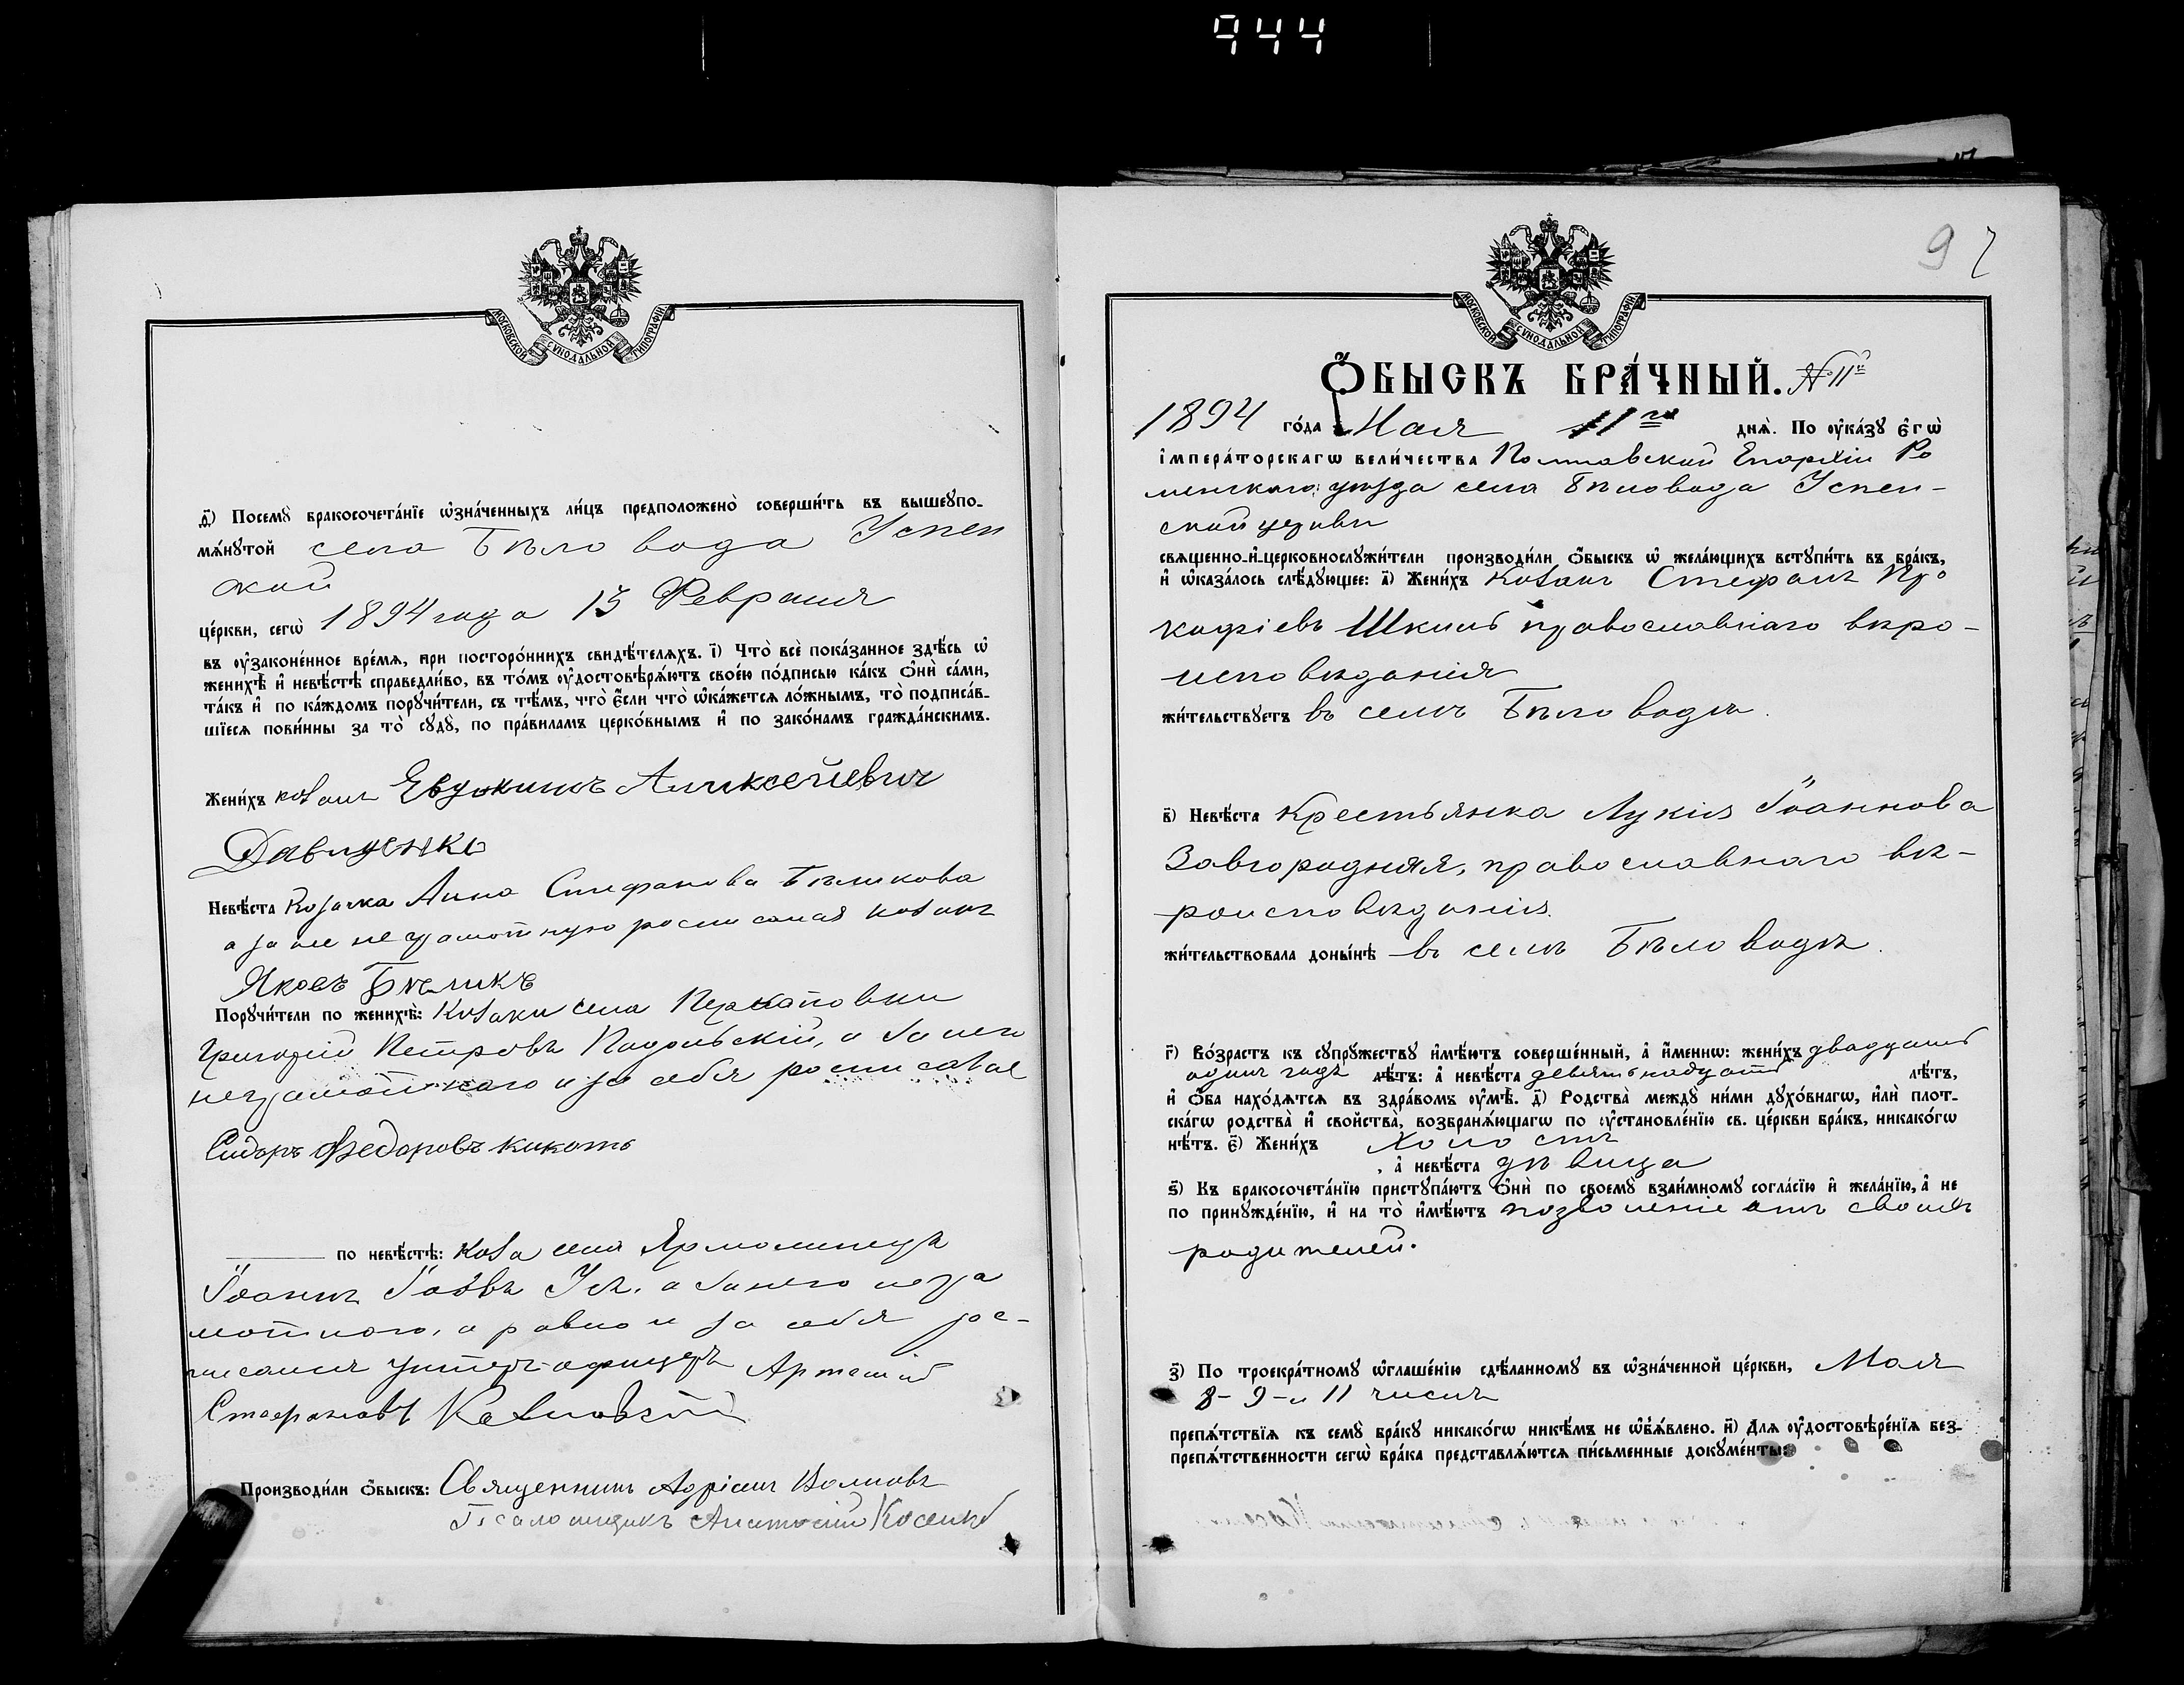 944
МОСКОВСКОЙ СѴНОДАЛЬНОЙ ТИПОГРАФІИ
д҃) Посемꙋ бракосочета́нїе ѡ҆зна́ченныхъ ли́цъ предположено̀ соверши́ть въ вышеꙋпо-
мѧ́нꙋтой села Бѣловода Успен
ской
це́ркви, сегѡ̀ 1894 года 13 Февраля
въ ᲂу҆законе́нное вре́мѧ, при посторо́ннихъ свидѣ́телѧхъ. і҃) Что̀ всѐ пока́занное здѣ́сь ѡ҆
женихѣ̀ и҆ невѣ́стѣ справедли́во, въ то́мъ ᲂу҆достовѣрѧ́ютъ своею по́дписью ка́къ ѻ҆нѝ са́ми,
та́къ и҆ по ка́ждомъ порꙋчи́тели, съ тѣ́мъ, что̀ є҆́сли что̀ ѡ҆ка́жетсѧ ло́жнымъ, то̀ подписа́в-
шїесѧ пови́нны за то̀ сꙋдꙋ̀, по пра́виламъ церко́внымъ и҆ по зако́намъ гражда́нскимъ.
Жени́хъ козакъ Евдокимъ Алексеевич
Давиденко
Невѣ́ста Козачка Анна Стефанова Бѣликова
а за нее неграмотную росписался козакъ
Яковъ Бѣликъ
Порꙋчи́тели по женихѣ̀: Козаки села
Григорій Петровъ Подольскій, а за него
неграмотнаго и за себя росписався
Сидоръ Федоровъ Кикоть
по невѣ́стѣ: Коза села Ярмолинецъ
Іоаннъ а за него негра
мотного, а равно и за себя рос-
писался унтеръ-офицеръ Артемій
Стефановъ
Производи́ли ѻ҆́быскъ: Священникъ Адріанъ Волковъ
Псаломщикъ Анатолій Косенко
97
МОСКОВСКОЙ СѴНОДАЛЬНОЙ ТИПОГРАФІИ
Ѻ҆́БЫСКЪ БРА́ЧНЫЙ. № 11й
1894 го́да Мая 11го днѧ̀. По ᲂу҆ка́зꙋ є҆гѡ̀
і҆мпера́торскагѡ вели́чества Полтавской Епархіи Ро
менскаго уѣзда села Бѣловода Успен-
ской церкви
свѧщенно-и҆-церковнослꙋжи́тели производи́ли ѻ҆́быскъ ѡ҆ жела́ющихъ встꙋпи́ть въ бра́къ,
и҆ ѡ҆каза́лось слѣ́дꙋющее: а҃) Жени́хъ Козакъ Стефанъ Про
кофіевъ Шкиль православнаго вѣро-
исповѣданія
жи́тельствꙋетъ въ селѣ Бѣловодѣ.
в҃) Невѣ́ста Крестьянка Лукія Іоаннова
Завгородняя, православнаго вѣ-
роисповѣданія.
жи́тельствовала доны́нѣ въ селѣ Бѣловодѣ.
г҃) Во́зрастъ къ сꙋпрꙋ́жествꙋ и҆мѣ́ютъ соверше́нный, а҆ и҆́меннѡ: жени́хъ двадцать
одинъ годъ лѣ́тъ: а҆ невѣ́ста девятьнадцать лѣ́тъ,
и҆ ѻ҆́ба нахо́дѧтсѧ въ здра́вомъ ᲂу҆мѣ̀. д҃) Родства̀ междꙋ̀ ни́ми дꙋхо́внагѡ, и҆лѝ плот-
ска́гѡ родства̀ и҆ свойства̀, возбранѧ́ющагѡ по ᲂу҆становле́нїю св. це́ркви бра́къ, никако́гѡ
нѣ́тъ. є҃) Жени́хъ Холостъ
, а҆ невѣ́ста дѣвица
ѕ҃) Къ бракосочета́нїю пристꙋпа́ютъ ѻ҆нѝ по своемꙋ̀ взаи́мномꙋ согла́сїю и҆ жела́нїю, а҆ не
по принꙋжде́нїю, и҆ на то̀ и҆мѣ́ютъ позволеніе отъ своихъ
родителей.
з҃) По троекра́тномꙋ ѡ҆глаше́нїю сдѣ́ланномꙋ въ ѡ҆зна́ченной це́ркви, Мая
8- 9- и 11 чиселъ
препѧ́тствїѧ къ семꙋ̀ бра́кꙋ никако́гѡ никѣ́мъ не ѡ҆б̾ѧ́влено. и҃) Длѧ ᲂу҆достовѣре́нїѧ без-
препѧ́тственности сегѡ̀ бра́ка представлѧ́ютсѧ пи́сьменные докꙋме́нты: